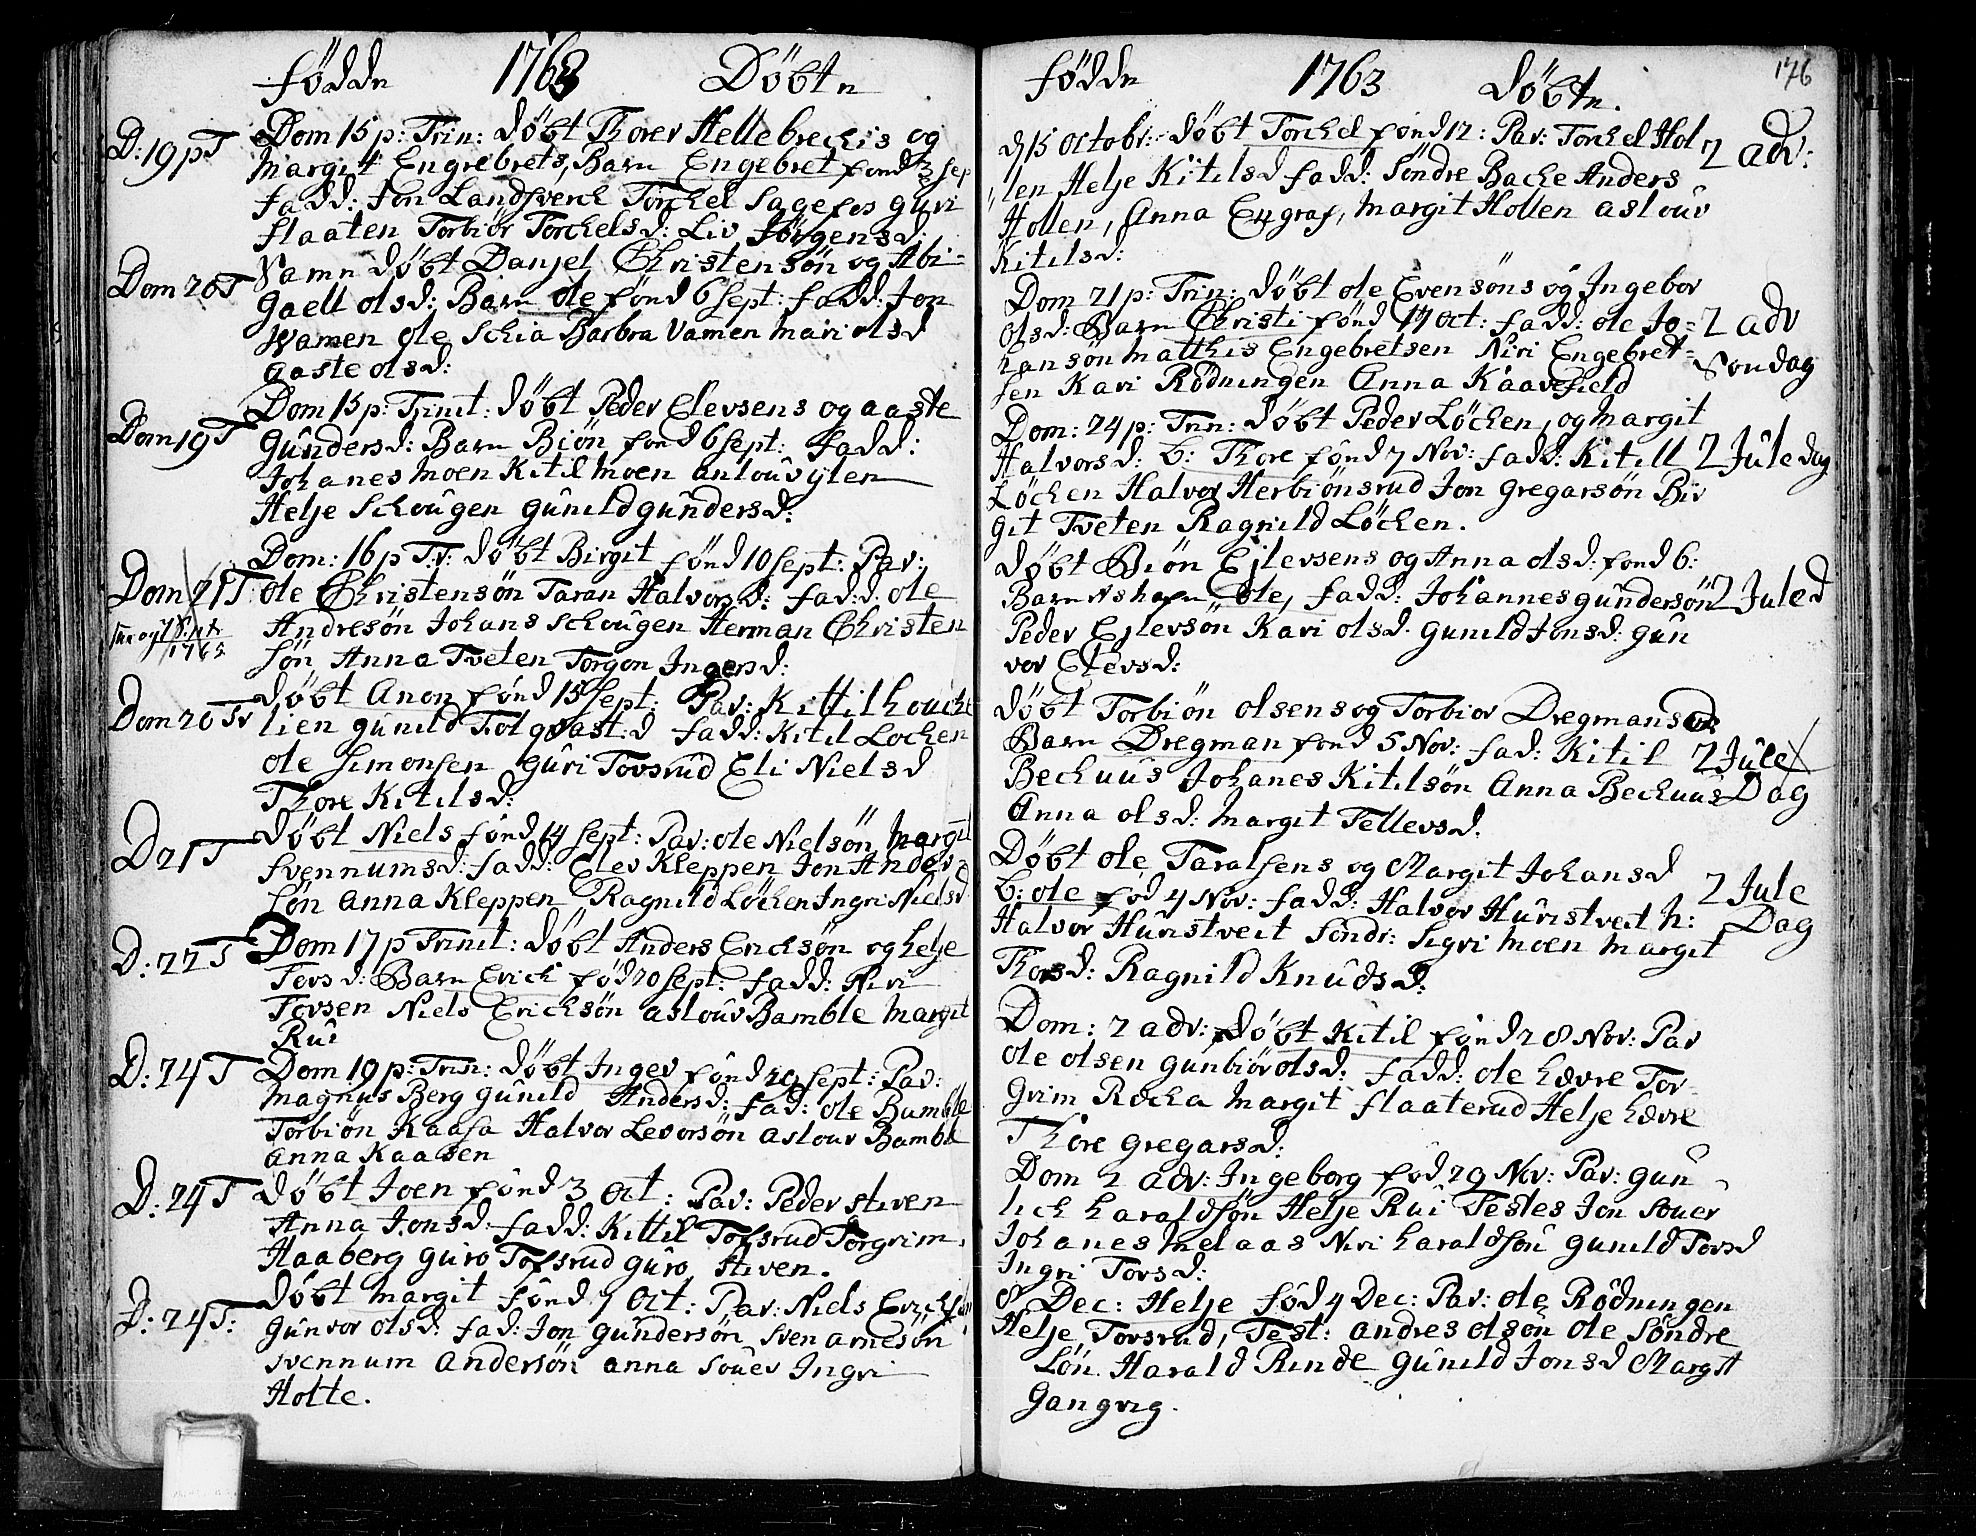 fødde 1763 Døbte
D: 19 p T
Dom 15 p: Trin: døbt Thorer Hellebrechis og
Margit Engrebrets, Barn Engebret fønd 3 sep
fadd: Jon Landsverck Torchel Sagefos guri
flaaten Torbiør Torchelsd: Liv Jørgensd:
Dom 20 T
Samn døbt Danjel Christensøn og Abi-
gaell olsd: Barn ole fønd 6 sept: fadd: Jon
Vamen ole Schia Barbra Vamen mari olsd
Aaste olsd:
Dom 19 T
Dom 15 p: Trinit: døbt Peder Elevsens og aaste
Gûndersd: Barn Biøn fønd 6 sept: fadd:
Johanes moen Kitil moen
Helje Schougen gunild gûndersd:
Dom 21 T:
Dom: 16 p Tr: døbt Birgit fønd 10 sept: Par:
ole Christensøn Taran Halvorsd: fadd: ole
Andresøn Johans Schougen Herman Christen
søn Anna Tveten Torgon Ingersd:
Dom 20 Tr
døbt Anon fønd 15 sept: Par: Kittil
lien gunild Tolqvastd fadd: Kitil Løchen
ole Simonsen guri Tovsrud Eli Nielsd
Thore Kitilsd:
D 21 T
døbt Niels fønd 14 sept: Par: ole Nielsøn Margit
svennumsd: fadd: Elev Kleppen Jon Ander-
søn Anna Kleppen Ragnild Løchen Ingri Nielsd
D: 22 T
Dom 17 p Trinit: døbt Anders Ericksøn og helje
Tovsd: Barn Erich fød 20 sept: fadd: Niri
Tovsen Niels Ericksøn aslouv Bamble margit
Rui
D: 24 T
Dom 19 p: Trin: døbt Inger fønd 29 sept: Par:
magnus Berg gunild Andersd: fad: ole Bamble
Torbiøn Kaasa Halvor Levorsøn aslouv Bamble
Anna Kaasen
D: 24 T
døbt Joen fønd 3 Oct: Par: Peder stiven
Anna Jonsd: fadd: Kittil Tofsrud Torgrim
Haaberg guro Tofsrud guro stiven.
D: 24 T:
døbt margit fønd 7 Oct: Par: Niels Ericksøn
gunvor olsd: fad: Jon gundersøn sven arnesøn
svennum andersøn anna souer Ingri
Holte.
fødde 1763 døbte.
176
d 15 octobr: døbt Torchel fønd 12: Par: Torchel Hol
2 adv:
len Helje Kitilsd fadd: søndre Bache Anders
Hollen, Anna Engraf, margit Hollen aslouv
Kitilsd:
Dom 21 p: Trin: døbt ole Evensøns og Ingebor
olsd: Barn Christi fønd 17 oct: fadd: ole Jo-
2 adv
hansøn matthis Engebretsen Niri Engebret-
Søndag
sen Kari Rødningen Anna Kaavefield
Dom: 24 p: Trin: døbt Peder Løchen, og margit
Halvorsd: b: Thore fønd 7 Nov: fadd: Kitill
2 Jule dag
Løchen Halvor Herbiønsrud Jon gregarsøn Bir
git Tveten Ragnild Løchen.
døbt Biøn Ejlevsens og Anna olsd: fønd 6:
Barn ole, fadd: Johannes gûndersøn
2 Jule d
Peder Ejlevsøn Kari olsd. gunild Jonsd: gun
vor Elevsd:
døbt Torbiøn olsens og Torbior Dregmansd
Barn Dregman fønd 5 Nov: fad: Kitil
2 Jule
Bechuus Johanes Kitilsøn Anna Bechuus
Dag
Anna olsd: margit Tellevsd.
Døbt ole Taralsens og Margit Johansd
b: ole fød 4 Nov: fadd: Halvor Hûristveit h:
2 Jule
Halvor Hûristveit søndr: Sigri moen margit
Dag
Thorsd: Ragnild Knudsd:
Dom: 2 adv: døbt Kitil fønd 28 Nov: Par
ole olsen gunbiør olsd: fadd: ole hævre Tor-
grim Rocha margit flaaterud Helje hævre
Thore gregarsd:
Dom 2 adv: Ingeborg fød 29 Nov: Par: gun
lick haraldsøn Helje Rui Testes Jon souer
Johanes melaas Niri haraldsøn gunild Tovsd
Ingri Tovsd:
8 Dec: Helje fød 4 Dec: Par: ole Rødningen
Helje Tovsrud, Test: andres olsøn ole søndre
søn. Harald Rinde gûnild Jonsd Margit
Gangvig.